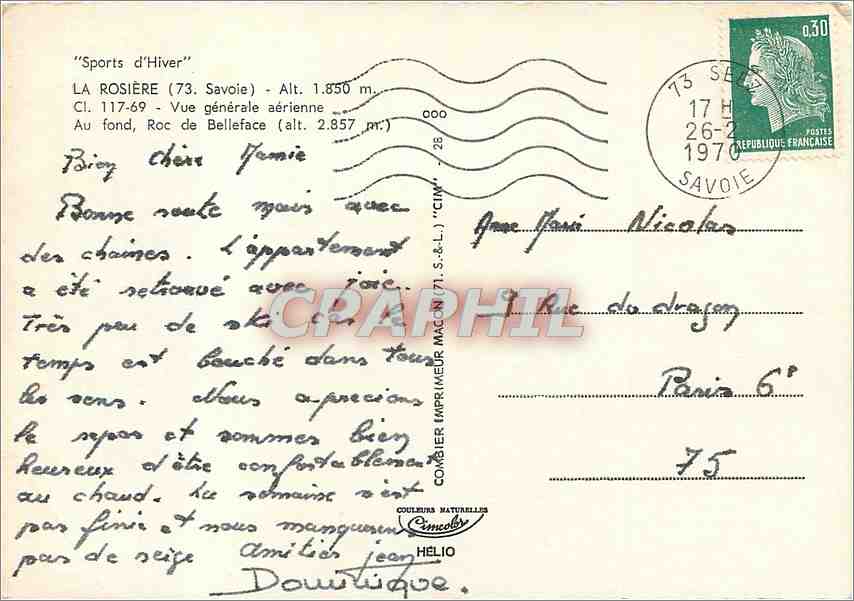 "Sports d'Hiver"
LA ROSIÈRE (73. Savoie) - Alt. 1.850 m.
Cl. 117-69 - Vue générale aérienne
Au fond, Roc de Belleface (alt. 2.857 m.)
Bien chère Mamie
Bonne route mais avec
des chaines. L'appartement
a été retrouvé avec joie.
Très peu de ski car le
temps est bouché dans tous
les sens. Nous aprecions
le repos et sommes bien
heureux d'être confortablement
au chaud. La semaine n'est
pas finie et nous manquerons
pas de neige Amitiés Jean
Dominique.
COMBIER IMPRIMEUR MACON (71. S.-&-L.) "CIM" - 28 000
COULEURS NATURELLES
Cimcolor
HÉLIO
0,30
POSTES
REPUBLIQUE FRANÇAISE
73 SEEZ
17 H
26-2
1970
SAVOIE
Anne Marie Nicolas
9 Rue du dragon
Paris 6e
75
CPARHIL